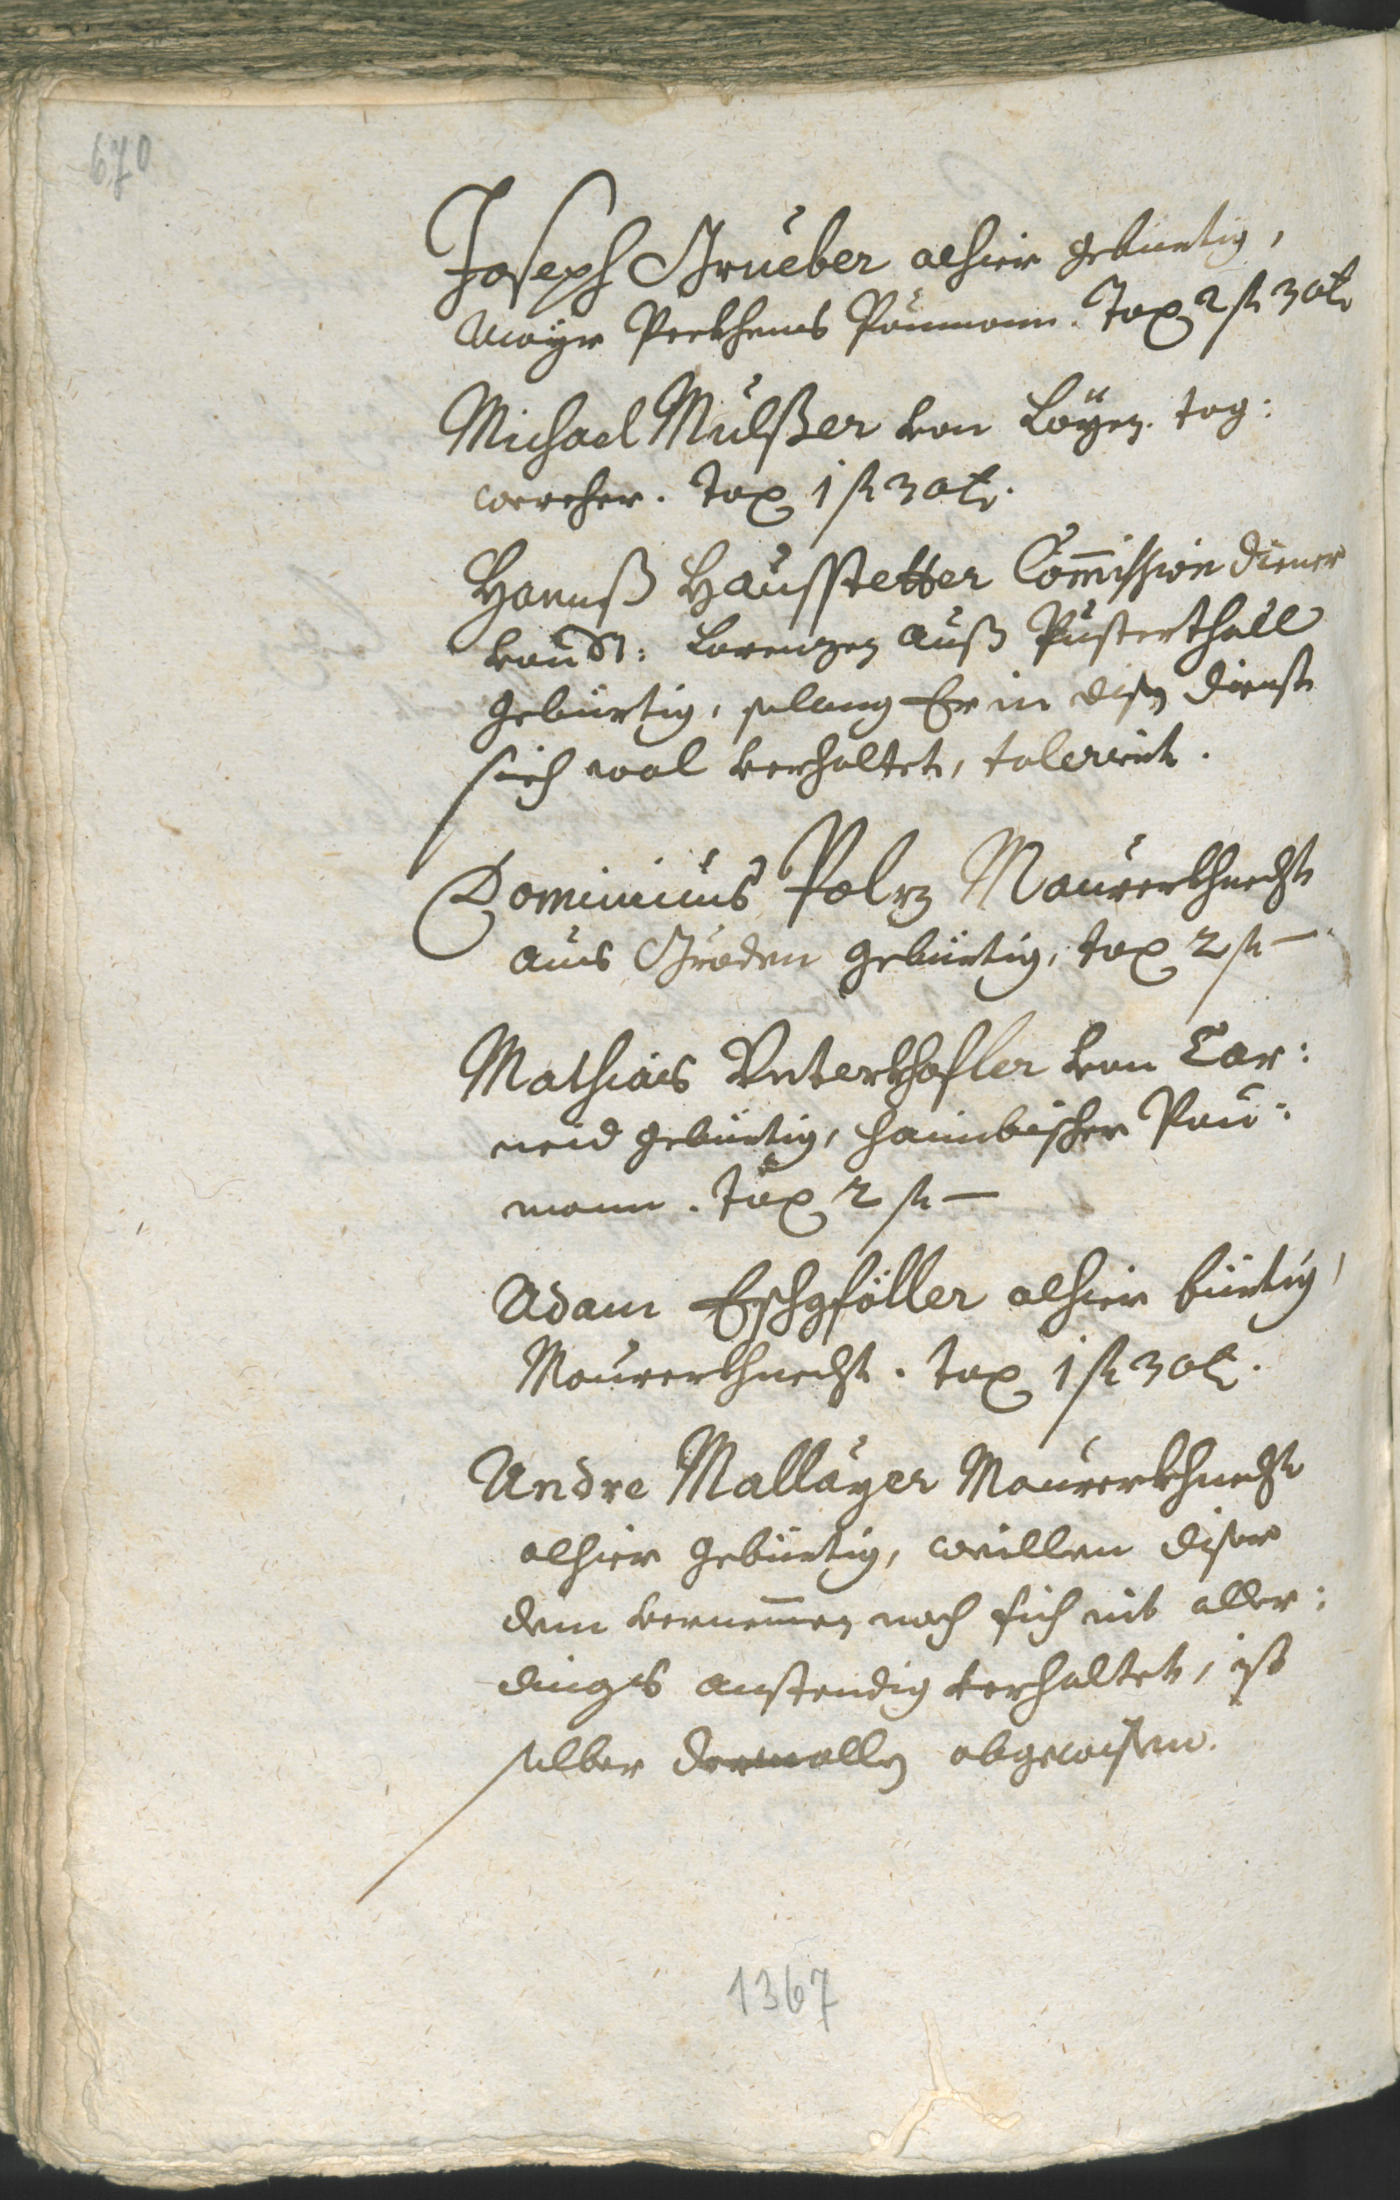 670
Joseph Grueber alhier gebürtig,
Mayr Perkhems Paumann. Tax 2 fl 30 kr
Michael Mulßer von Layen. tag:
wercher. Tax 1 fl 30 kr.
Hannß Hausstetter Com̄ission diener
von St: Lorenzen auß Pusterthall
gebürtig, solang Er in disen dienst
sich wol verhaltet, toleriert.
Dominicus Polz Maurerkhnecht
aus Gröden gebürtig, tax 2 fl –
Mathias Unterkhofler von Car:
neid gebürtig, haimbischer Pau:
mann. Tax 2 fl –
Adam Eschgföller alhier bürtig,
Maurerkhnecht. Tax 1 fl 30 kr.
Andre Mallayer Maurerkhnecht
alhier gebürtig, weillen diser
dem vernem̄en nach sich nit aller:
dings anstendig verhaltet, ist
selber dermallen abgewisen.
1367